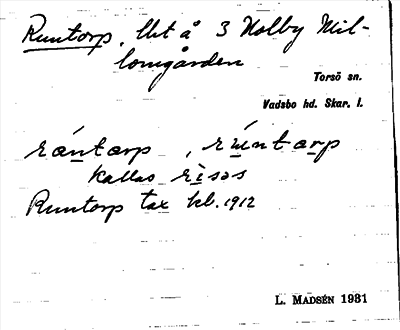 Runtorp, lht å 3 Holby Mil-
lomgården
Torsö sn.
Vadsbo hd. Skar. l.
rántarp , rúntarp
kallas rìsəs
Runtorp tax kb. 1912
L. MADSÉN 1931